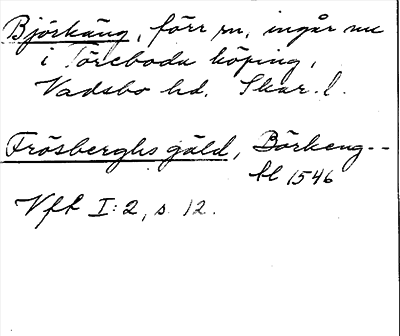 Björkäng, förr sn, ingår nu
i Töreboda köping,
Vadsbo hd. Skar. l.
Frösberghs gäld, Börkeng--
hl 1546
Vft I:2, s. 12.